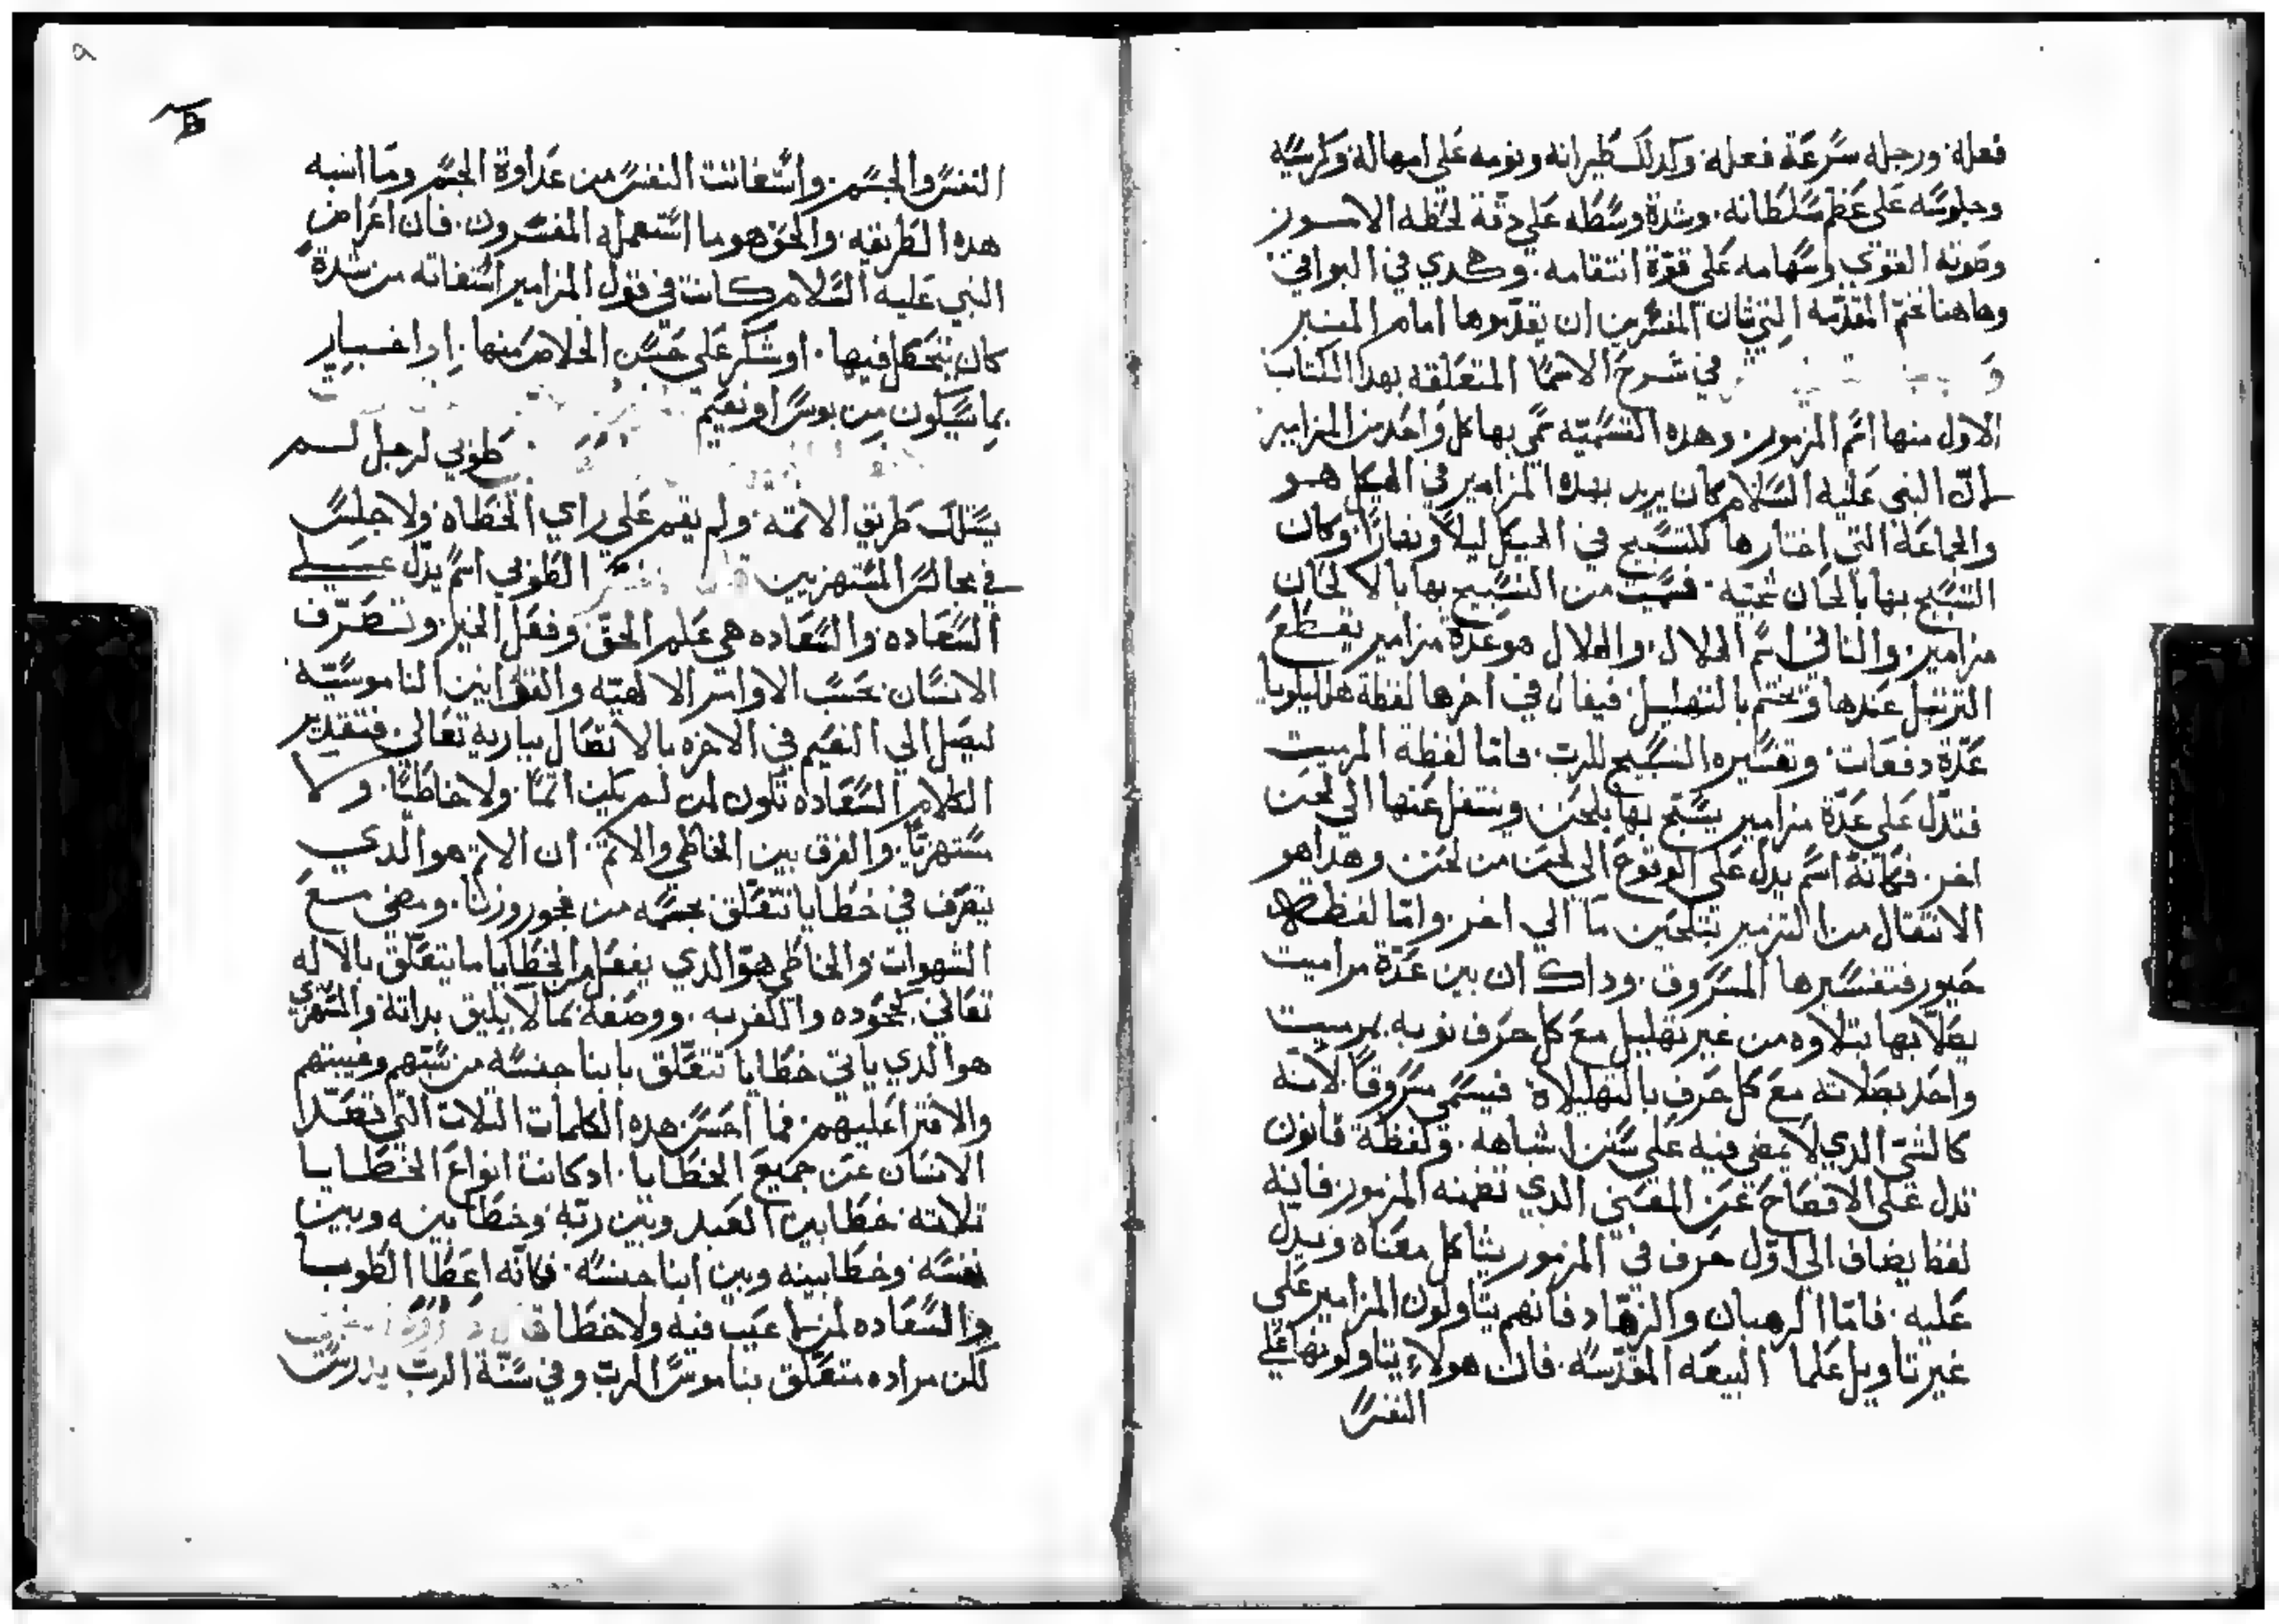 فعله ورجله سرعة فعله وكدلك طيرانه ونومه على امهاله وكرسيه
وجلوسه على عظم سلطانه وشدة وسطه على دقة لحظه الامور
وصوته القوي وسهامه على قوة انتقامه وهكدي في البواقي
وهاهنا نختم المقدمه التي شان المفسرين ان يقدموها امام المفسر
في شرح الاسما المتعلقه بهدا الكتاب
الاول منها اسم المزمور وهده التسميه سمي بها كل واحد من المزامير
لان النبي عليه السلام كان يريد بهده المزامير في الهيكل هو
والجماعة التي اختارها للتسبيح في الهيكل ليلاً ونهاراً وكان
التسبيح بها بالحان شجيه فسميت من التسبيح بها بالالحان
مزامير والثاني اسم الهلال والهلال هو عدة مزامير يقطع
الترتيل عندها وتختم بالتهليل فيقال في اخرها لفظة هلليلويا
عدة دفعات وتفسيره التسبيح للرب فاما لفظة المرميت
فتدل على عدة مزامير يسبح بها بلحن وينتقل عنها الي لحن
اخر فكانه اسم يدل على الوقوع الي لحن من لحن وهدا هو
الانتقال من التزمير بتلحين ما الي اخر واما لفظة
حيور فتفسيرها المسروق وداك ان بين عدة مراميت
يصلا بها بتلاوه من غير تهليل مع كل حرف نوبه مرميت
واحد بصلاته مع كل حرف بالتهليلاة فيسمي مسروقاً لانه
كالشي الدي لا يمضي فيه على سنن اشباهه ولفظة قانون
تدل على الافصاح عن المعني الدي تضمنه المزمور فانه
لفظ يضاف الي اول حرف في المزمور يشاكل معناه ويدل
عليه فاما الرهبان والزهاد فانهم يتاولون المزامير على
غير تاويل علما البيعه المقدسه فان هولاء يتاولونها على
النفس
النفس والجسم واستغاثت النفس من عداوة الجسم وما اشبه
هده الطريقه والحق هو ما استعمله المفسرون فان اغراض
النبي عليه السلام كانت في قول المزامير استغاثه من شدة
كان يتحكل فيها او شكر على حسن الخلاص منها او اخبار
بما سيكون من بوس او نعيم
طوبي لرجل لم
يسلك طريق الاثمه ولم يقم على راي الخطاه ولا جلس
في مجالس المستهزيين الطوبي اسم يدل على
السعاده والسعاده هي علم الحق وفعل الخير وتصرف
الانسان بحسب الاوامر الالهيه والقوانين الناموسيه
ليصل الي النعيم في الاخره بالاتصال بباريه تعالي فتقدير
الكلام السعاده تكون لمن لم يكن اثماً ولا خاطياً ولا
مستهزياً والفرق بين الخاطي والاثم ان الاثم هو الدي
يتعرف في خطايا تتعلق بجسمه من فجور وزنا ومضي مع
الشهوات والخاطي هو الدي يفعل من الخطايا ما يتعلق بالاله
تعالي كجحوده والكفر به ووصفه بما لا يليق بداته والمستهزي
هو الدي ياتي خطايا تتعلق بابنا جنسه من سبهم وغيبتهم
والافترا عليهم فما احسن هده الكلمات الثلات التي تبعد
الانسان عن جميع الخطايا اد كانت انواع الخطايا
ثلاثه خطا بين العبد وبين ربه وخطا بينه وبين
نفسه وخطا بينه وبين ابنا جنسه فكانه اعطا الطوبا
والسعاده لمن لا عيب فيه ولا خطا
لكن مراده متعلق بناموس الرب وفي سنة الرب يدرس